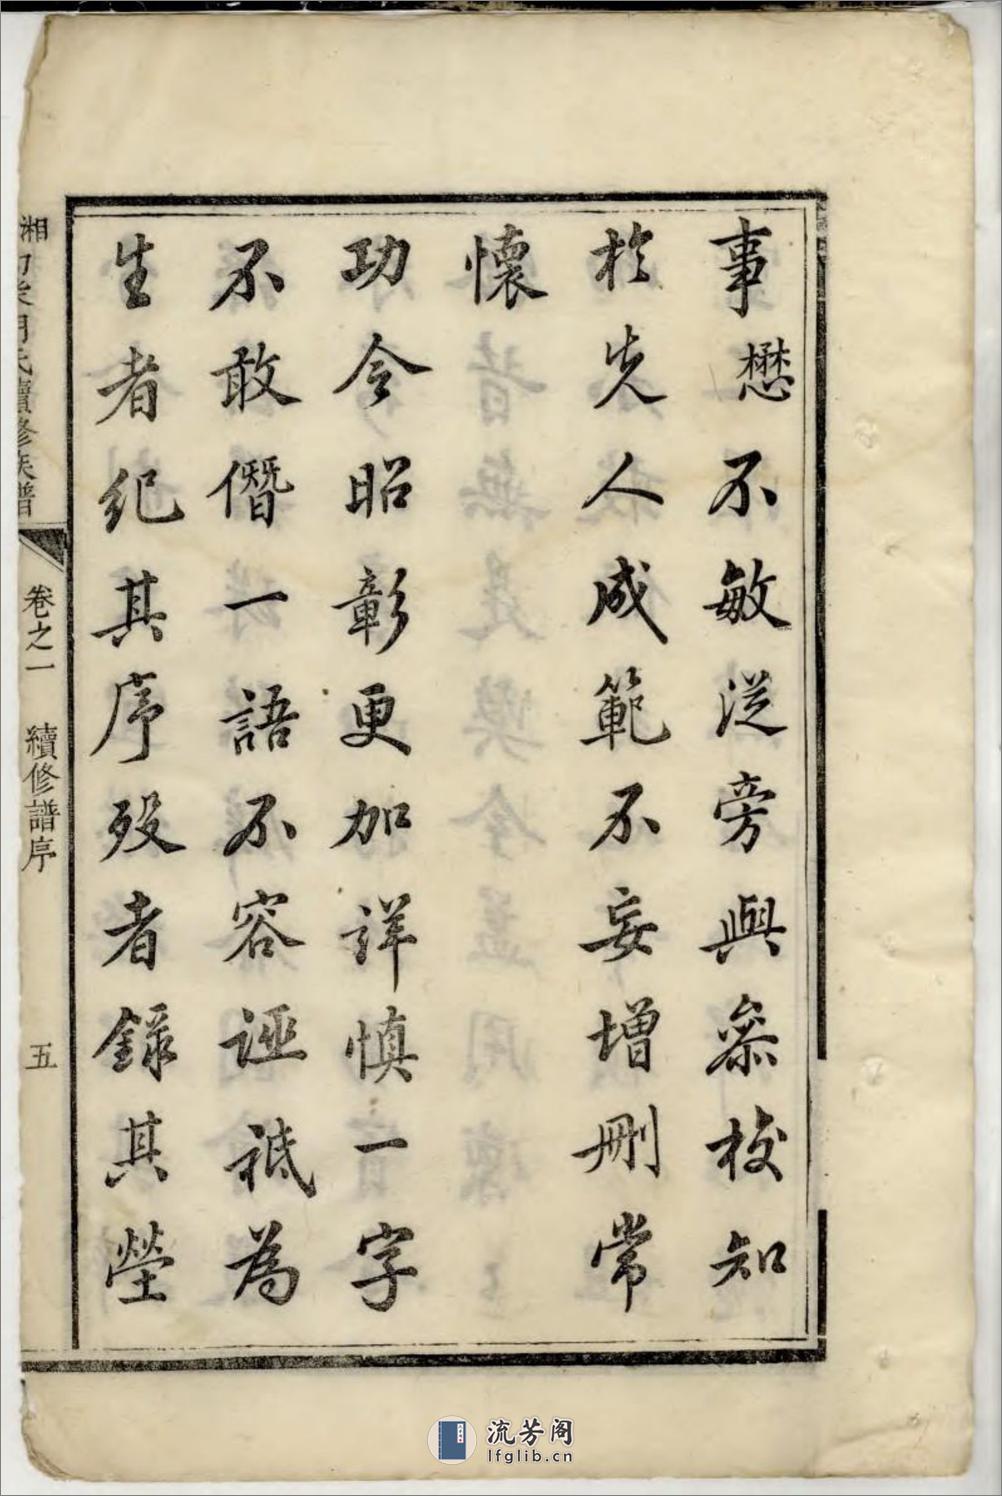 事懋不敏從旁與參校知
於先人成範不妄增刪常
懷
功令昭彰更加詳慎一字
不敢僭一語不容誣祗為
生者紀其序歿者錄其塋
湘
氏續修族譜
卷之一 續修譜序 五
流芳阁
lfglib.cn